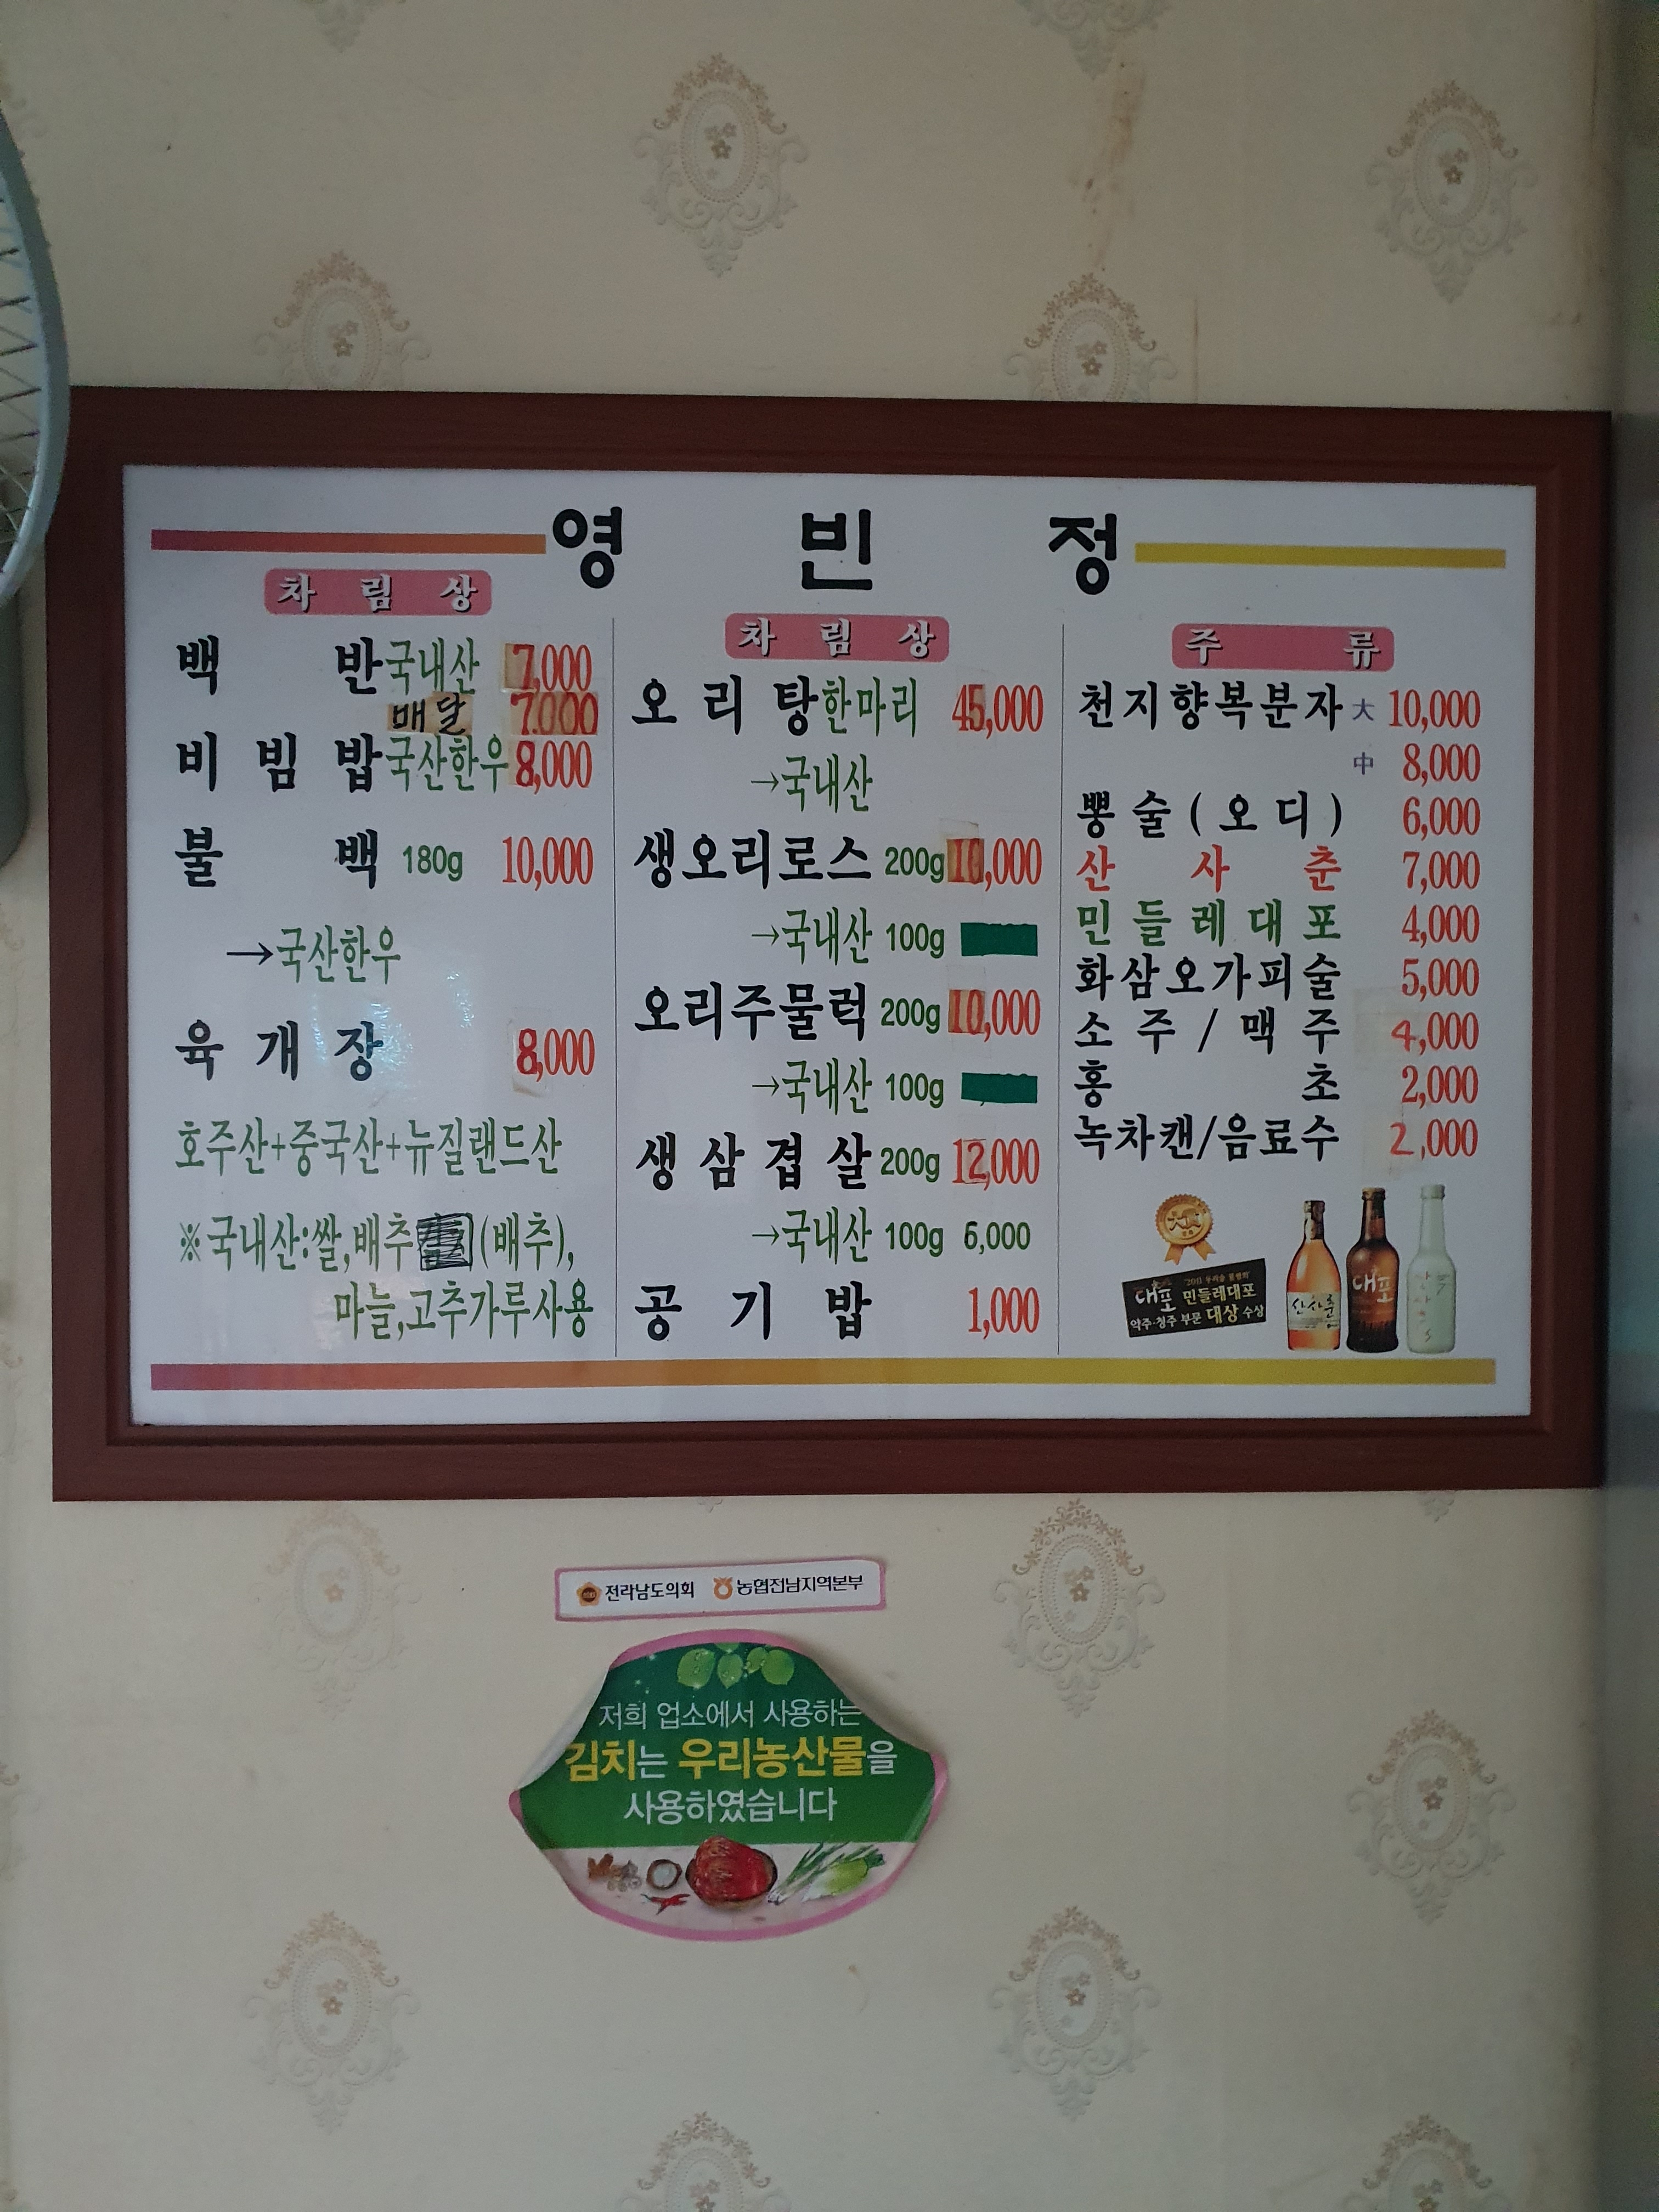 영 빈 정
차 림 상
백 반 국내산 7,000
배달 7,000
비 빔 밥 국산한우 8,000
불 백 180g 10,000
→국산한우
육 개 장 8,000
호주산+중국산+뉴질랜드산
※국내산:쌀,배추 (배추),
마늘,고추가루사용
차 림 상
오 리 탕 한마리 45,000
→국내산
생오리로스 200g 10,000
→국내산 100g
오리주물럭 200g 10,000
→국내산 100g
생 삼 겹 살 200g 12,000
→국내산 100g 6,000
공 기 밥 1,000
주 류
천지향복분자 大 10,000
中 8,000
뽕 술 ( 오 디 ) 6,000
산 사 춘 7,000
민 들 레 대 포 4,000
화삼오가피술 5,000
소 주 / 맥 주 4,000
홍 초 2,000
녹차캔/음료수 2,000
대포 민들레대포
약주·청주 부문 대상 수상
산사춘
대포
전라남도의회 농협전남지역본부
저희 업소에서 사용하는
김치는 우리농산물을
사용하였습니다